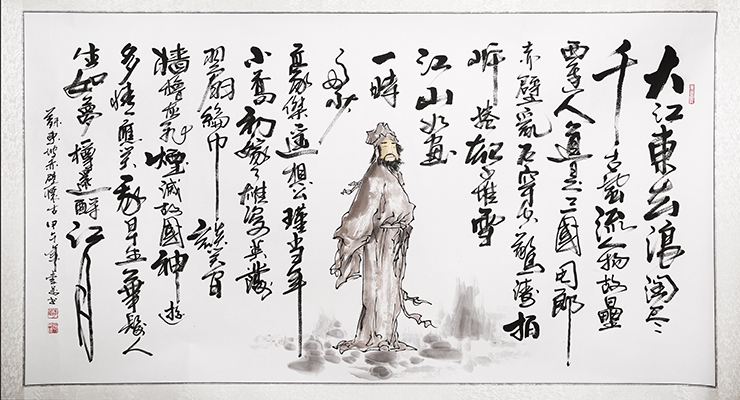 大江東去浪淘尽
千古風流人物故壘
西邊人道是三國周郎
赤壁亂石穿空驚濤拍
岸捲起千堆雪
江山如畫
一時
多少
豪傑遥想公瑾当年
小喬初嫁了雄姿英發
羽扇綸巾談笑间
檣櫓灰飛煙滅故國神遊
多情應笑我早生華髮人
生如夢樽還酹江月
蘇東坡赤壁懷古甲午年書